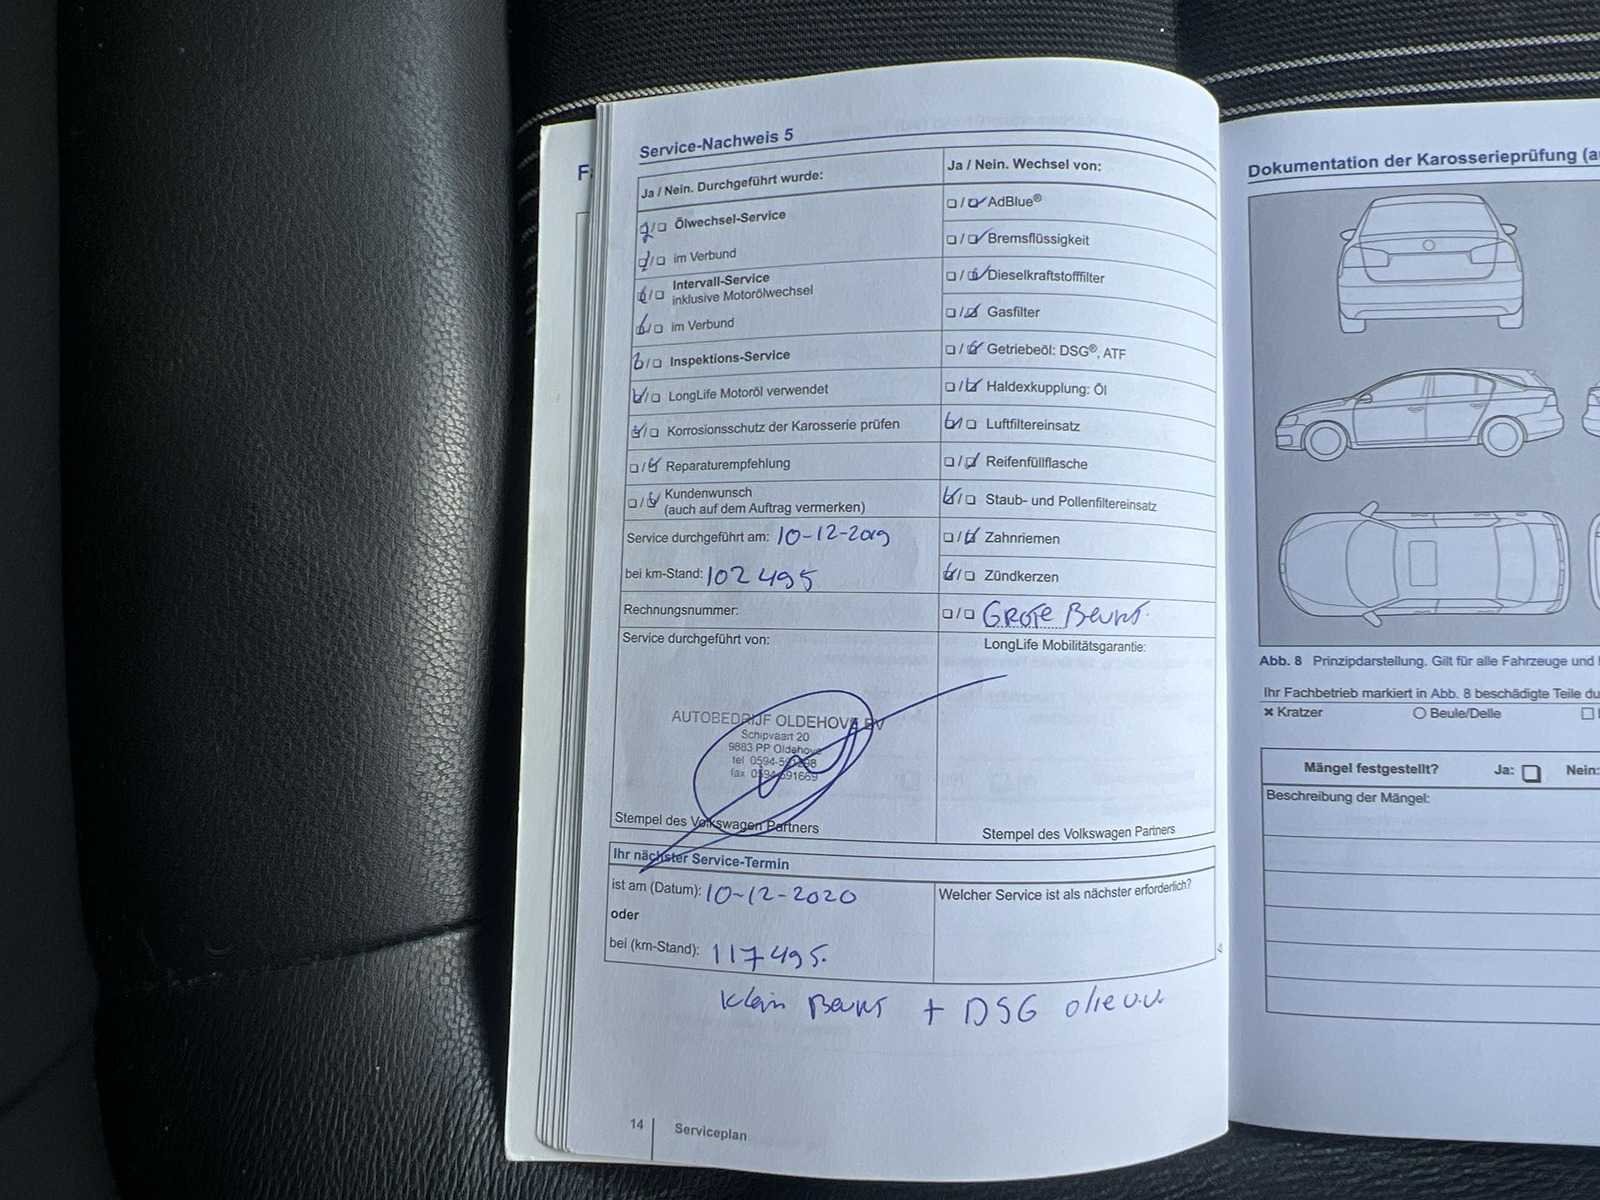 Service-Nachweis 5
Ja / Nein. Durchgeführt wurde:
Ölwechsel-Service
im Verbund
Intervall-Service
inklusive Motorölwechsel
im Verbund
Inspektions-Service
LongLife Motoröl verwendet
Korrosionsschutz der Karosserie prüfen
Reparaturempfehlung
Kundenwunsch
(auch auf dem Auftrag vermerken)
Service durchgeführt am: 10-12-2019
bei km-Stand: 102495
Rechnungsnummer:
Service durchgeführt von:
AUTOBEDRIJF OLDEHOVA BV
Schipvaart 20
9883 PP Oldehove
tel 0594-591298
fax 0594-591669
Stempel des Volkswagen Partners
Ja / Nein. Wechsel von:
AdBlue®
Bremsflüssigkeit
Dieselkraftstofffilter
Gasfilter
Getriebeöl: DSG®, ATF
Haldexkupplung: Öl
Luftfiltereinsatz
Reifenfüllflasche
Staub- und Pollenfiltereinsatz
Zahnriemen
Zündkerzen
Grote Beurt.
LongLife Mobilitätsgarantie:
Stempel des Volkswagen Partners
Ihr nächster Service-Termin
ist am (Datum): 10-12-2020
oder
bei (km-Stand): 117495.
Welcher Service ist als nächster erforderlich?
Klein Beurt + DSG olie v.v.
14
Serviceplan
Dokumentation der Karosserieprüfung
Abb. 8 Prinzipdarstellung. Gilt für alle Fahrzeuge und
Ihr Fachbetrieb markiert in Abb. 8 beschädigte Teile du
Kratzer
Beule/Delle
Mängel festgestellt? Ja: Nein:
Beschreibung der Mängel: